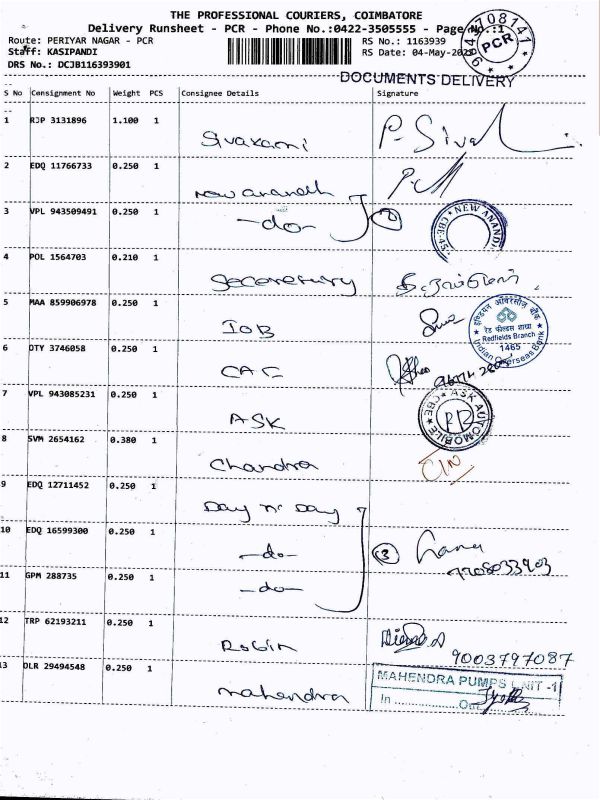 THE PROFESSIONAL COURIERS, COIMBATORE
Delivery Runsheet - PCR - Phone No.:0422-3505555 - Page No.:1
Route: PERIYAR NAGAR - PCR
RS No.: 1163939
Staff: KASIPANDI
RS Date: 04-May-
DRS No.: DCJB116393901
PCR
DOCUMENTS DELIVERY
S No Consignment No Weight PCS Consignee Details Signature
1 RJP 3131896 1.100 1
Sivakami
2 EDQ 11766733 0.250 1
New ananth
3 VPL 943509491 0.250 1
-do- 2
NEW ANAND
4 POL 1564703 0.210 1
5 MAA 859906978 0.250 1
IOB
इण्डियन ओवरसीज़ बैंक
रेड फील्डस शाखा
Redfields Branch
1465
Indian Overseas Bank
6 OTY 3746058 0.250 1
7 VPL 943085231 0.250 1
ASK
ASK AUTOMOBILE CBE
8 SVM 2654162 0.380 1
Chandra
9 EDQ 12711452 0.250 1
Day n' Day
10 EDQ 16599300 0.250 1
-do- 3
7208033903
11 GPM 288735 0.250 1
-do-
12 TRP 62193211 0.250 1
Robin
9003797087
13 DLR 29494548 0.250 1
mahendra
MAHENDRA PUMPS UNIT -1
In